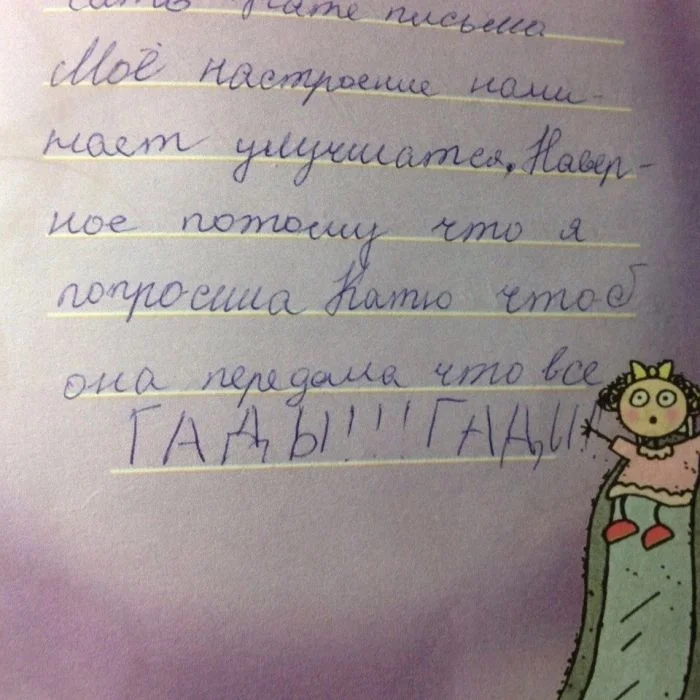 Кате письма
Моё настроение начи-
нает улучшатся. Навер-
ное потому что я
попросила Катю чтоб
она передала что все
ГАДЫ!!! ГАДЫ!!